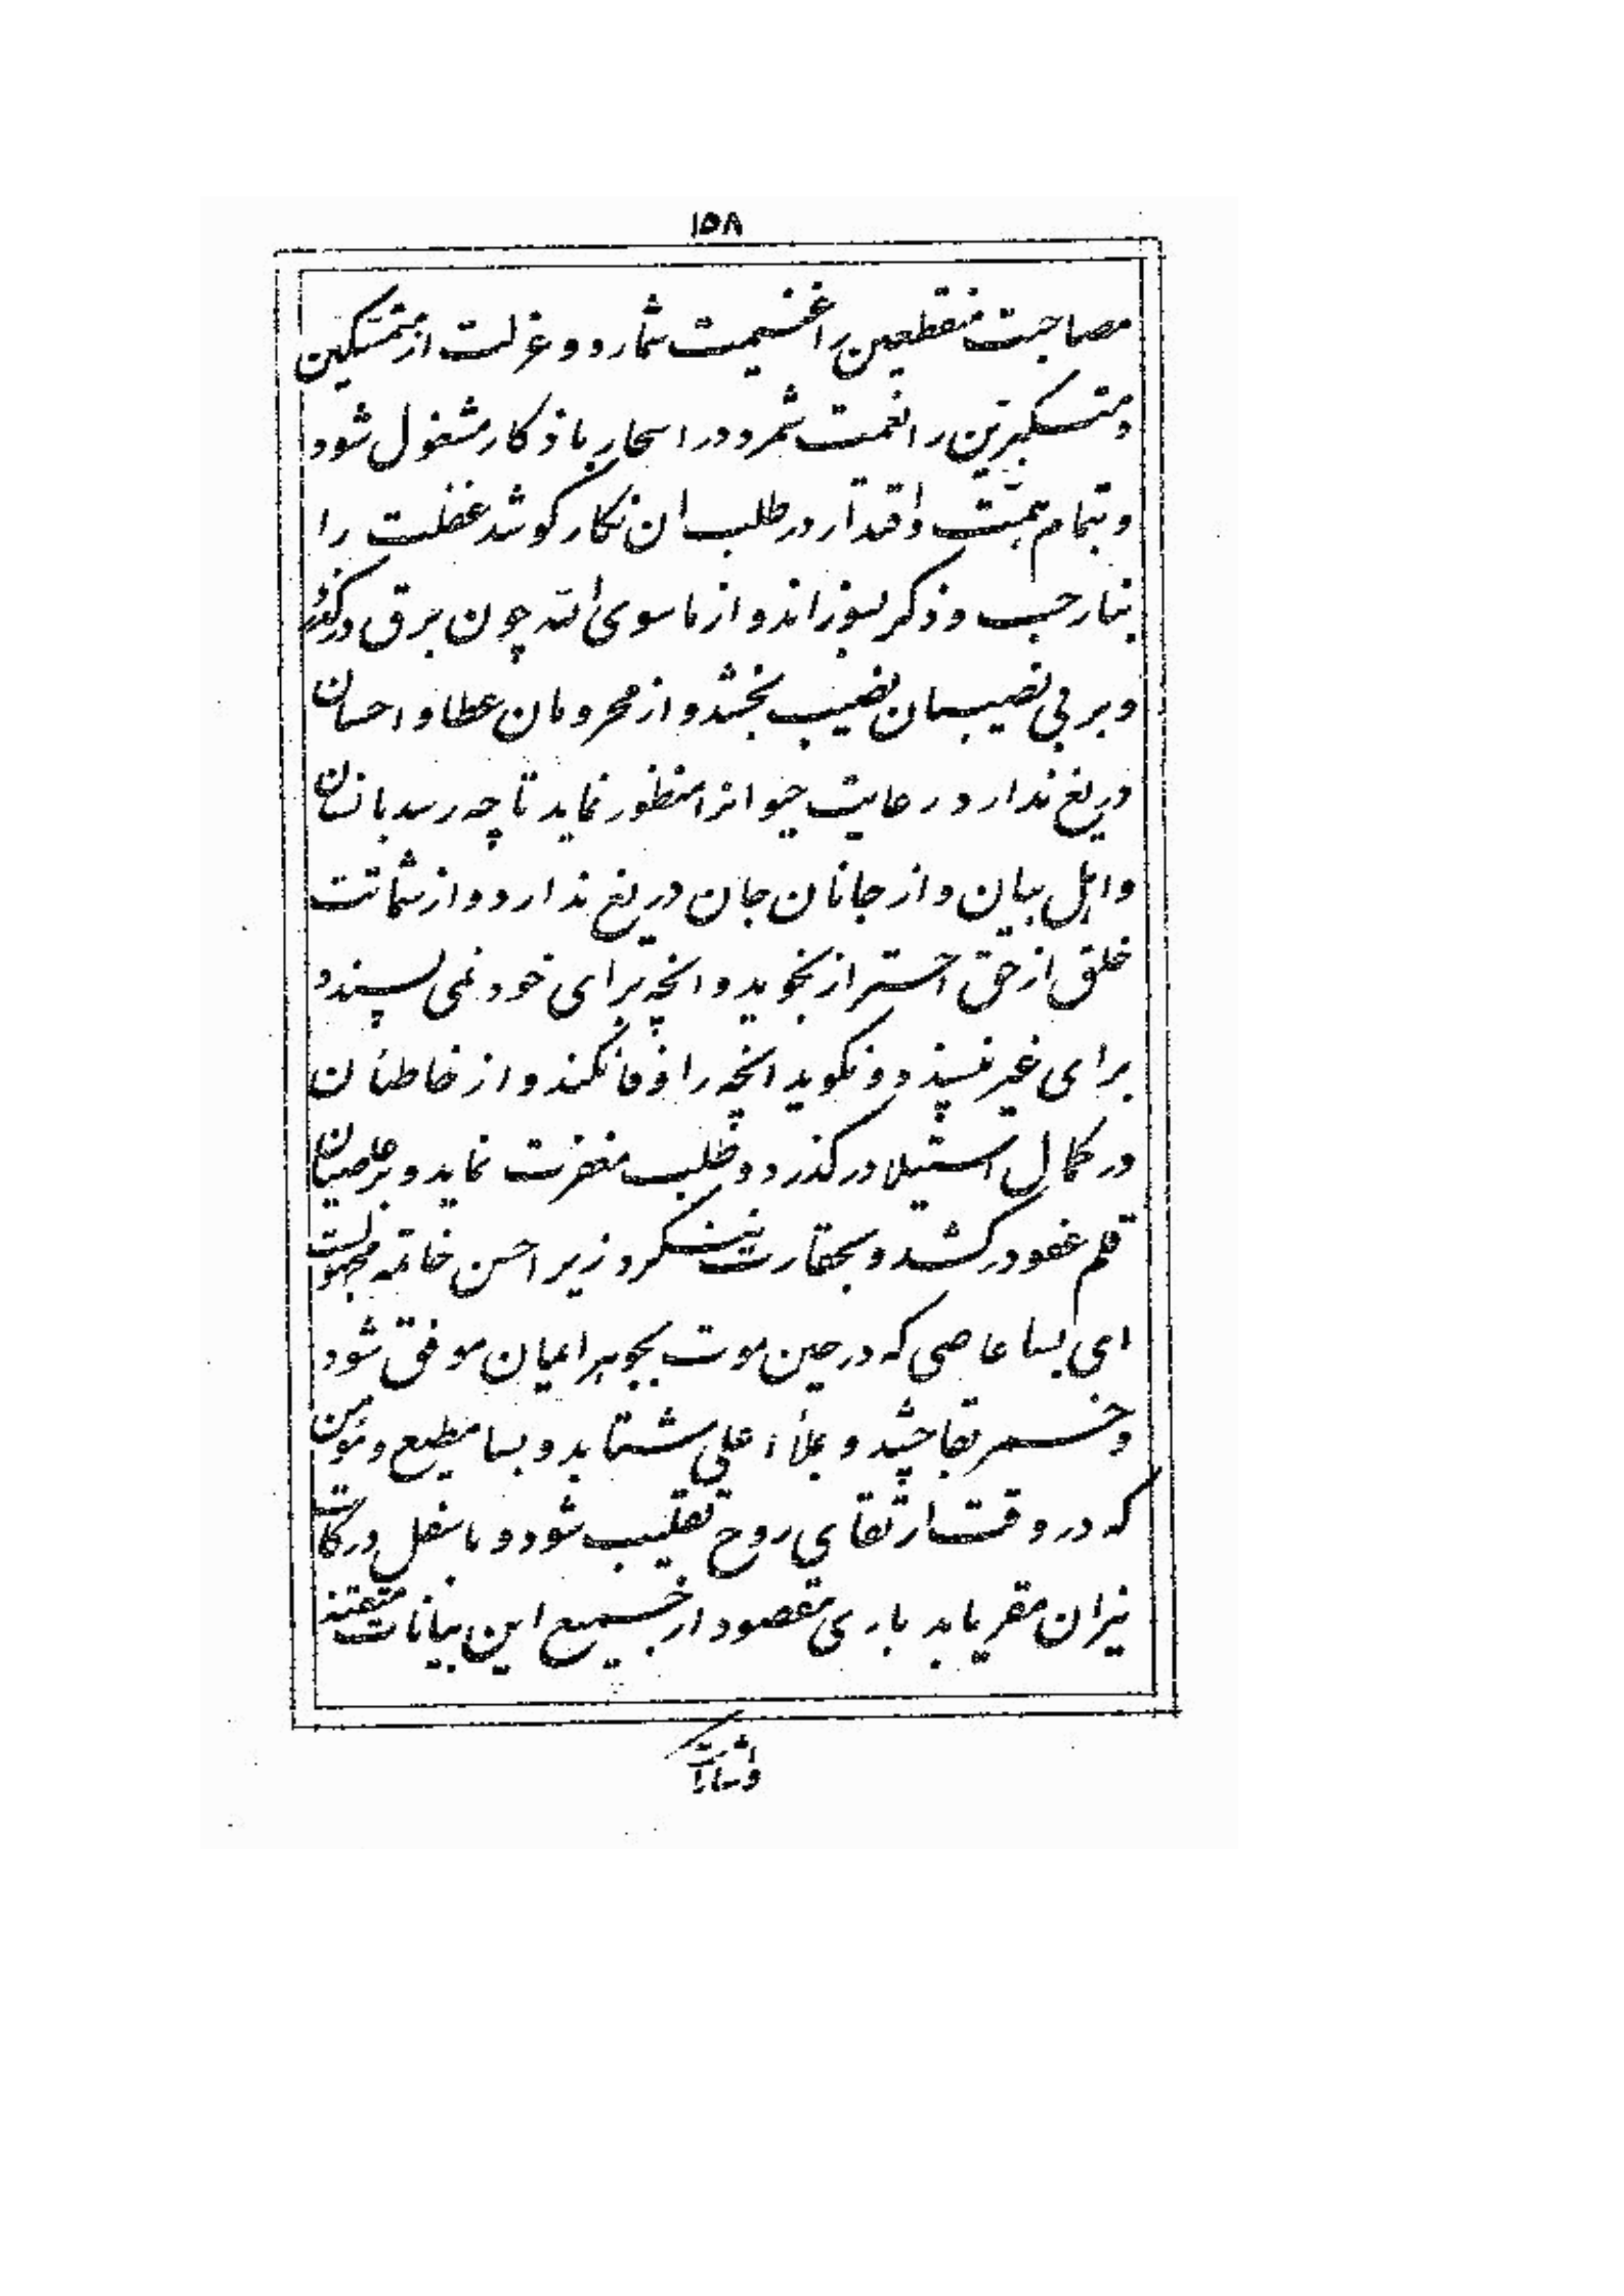 ١٥٨
مصاحبت منقطعین را غنیمت شمارد و عزلت از متمسکین
و متکبرین را نعمت شمرد در اسحار باذکار مشغول شود
و بتمام همت و اقتدار در طلب ان نکار کوشد غفلت را
بنار حب و ذکر بسوزاند و از ماسوی الله چون برق درکذرد
و بر بی نصیبان نصیب بخشد و از محرومان عطا و احسان
دریغ ندارد رعایت حیوانرا منظور نماید تا چه رسد بانسان
و اهل بیان و از جانان جان دریغ ندارد و از شماتت
خلق از حق احتراز نجوید و انچه برای خود نمی پسندد
برای غیر نپسندد و نکوید انچه را وفا نکند و از خاطئان
در کمال استیلا درکذرد و طلب مغفرت نماید و بر عاصیان
قلم عفو در کشد و بحقارت ننکرد زیرا حسن خاتمه مجهولست
ای بسا عاصی که در حین موت بجوهر ایمان موفق شود
و خمر بقا چشد و بملأ اعلی شتابد و بسا مطیع و مؤمن
که در وقت ارتقای روح تقلیب شود و باسفل درکات
نیران مقر یابد باری مقصود از جمیع این بیانات متقنه
و اشارات